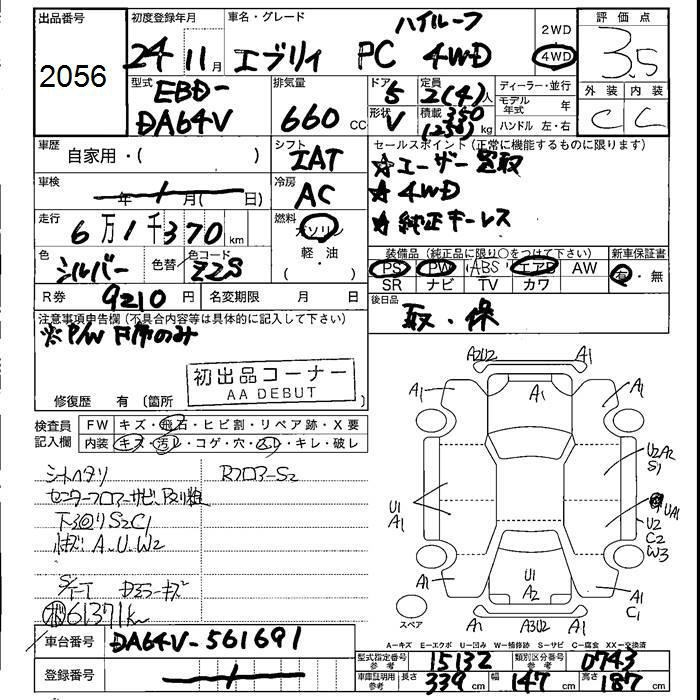 出品番号
2056
初度登録年月
24 11月
車名・グレード
エブリィ PC ハイルーフ 4WD
2WD
4WD
評価点
3.5
外装 内装
C C
型式
EBD-
DA64V
排気量
660 cc
ドア
5
形状
V
定員
2(4)人
積載 350
(250)kg
ディーラー・並行
モデル年式 年
ハンドル 左・右
車歴
自家用・( )
シフト
IAT
セールスポイント(正常に機能するものに限ります)
★ユーザー買取
★4WD
★純正キーレス
車検
年 月( 日)
冷房
AC
走行
6万1千370km
燃料
ガソリン
軽・油
( )
色
シルバー
色替
色コード
Z2S
装備品(純正品に限り○をつけて下さい)
PS PW ABS エアB AW
SR ナビ TV カワ
新車保証書
有・無
R券
9210円
名変期限 月 日
後日品
取・保
注意事項申告欄(不具合内容等は具体的に記入して下さい)
※P/W 下席のみ
初出品コーナー
AA DEBUT
修復歴 有(箇所 )
検査員
記入欄
FW キズ・飛石・ヒビ割・リペア跡・X要
内装 キズ・汚レ・コゲ・穴・スレ・キレ・破レ
シートヘタリ
RフロアーS2
センターフロアーサビ、
下回りS2C1
小キズ A.U.W2
61371km
A2U2 A1
A1
A1
A1
U2A2
S1
U1
A1
UA1
U2
C2
W3
A1
U1
A2
A1
C1
A1
A3U2
A1
スペア
A-キズ E-エクボ U-凹み W-補修跡 S-サビ C-腐食 XX-交換済
車台番号
DA64V-561691
登録番号
型式指定番号
参考
15132
類別区分番号
参考
0743
車庫証明用
参考
長さ
339 cm
幅
147 cm
高さ
187 cm